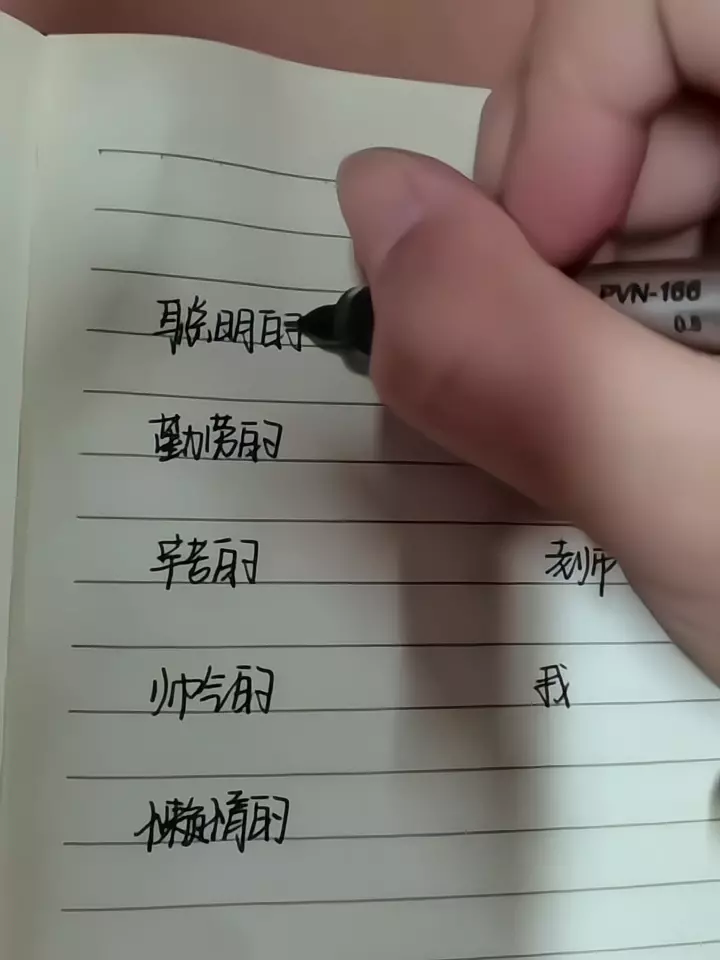 PVN-166
0.8
聪明的
勤劳的
辛苦的 老师
帅气的 我
懒惰的